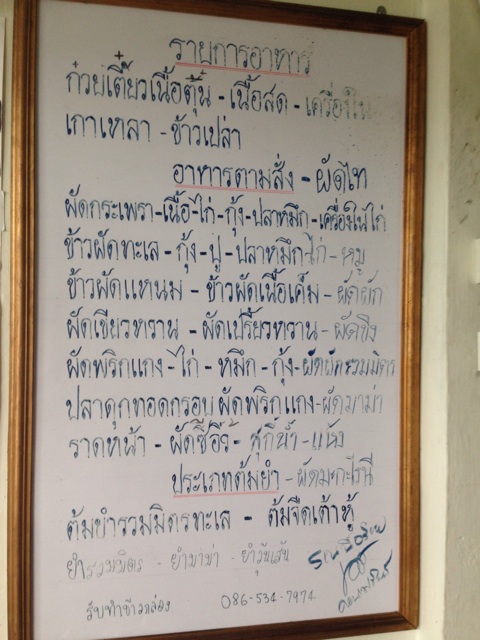 รายการอาหาร
ก๋วยเตี๋ยวเนื้อตุ๋น - เนื้อสด - เครื่องใน
เกาเหลา - ข้าวเปล่า
อาหารตามสั่ง - ผัดไท
ผัดกระเพรา - เนื้อ - ไก่ - กุ้ง - ปลาหมึก - เครื่องในไก่
ข้าวผัดทะเล - กุ้ง - ปู - ปลาหมึก - ไก่ - หมู
ข้าวผัดแหนม - ข้าวผัดเนื้อเค็ม - ผัดผัก
ผัดเขียวหวาน - ผัดเปรี้ยวหวาน - ผัดขิง
ผัดพริกแกง - ไก่ - หมึก - กุ้ง - ผัดผักรวมมิตร
ปลาดุกทอดกรอบผัดพริกแกง - ผัดมาม่า
ราดหน้า - ผัดซีอิ้ว - สุกี้น้ำ - แห้ง
ประเภทต้มยำ - ผัดมะกะโรนี
ต้มยำรวมมิตรทะเล - ต้มจืดเต้าหู้
ยำรวมมิตร - ยำมาม่า - ยำวุ้นเส้น
รับทำข้าวกล่อง 086-534-7974